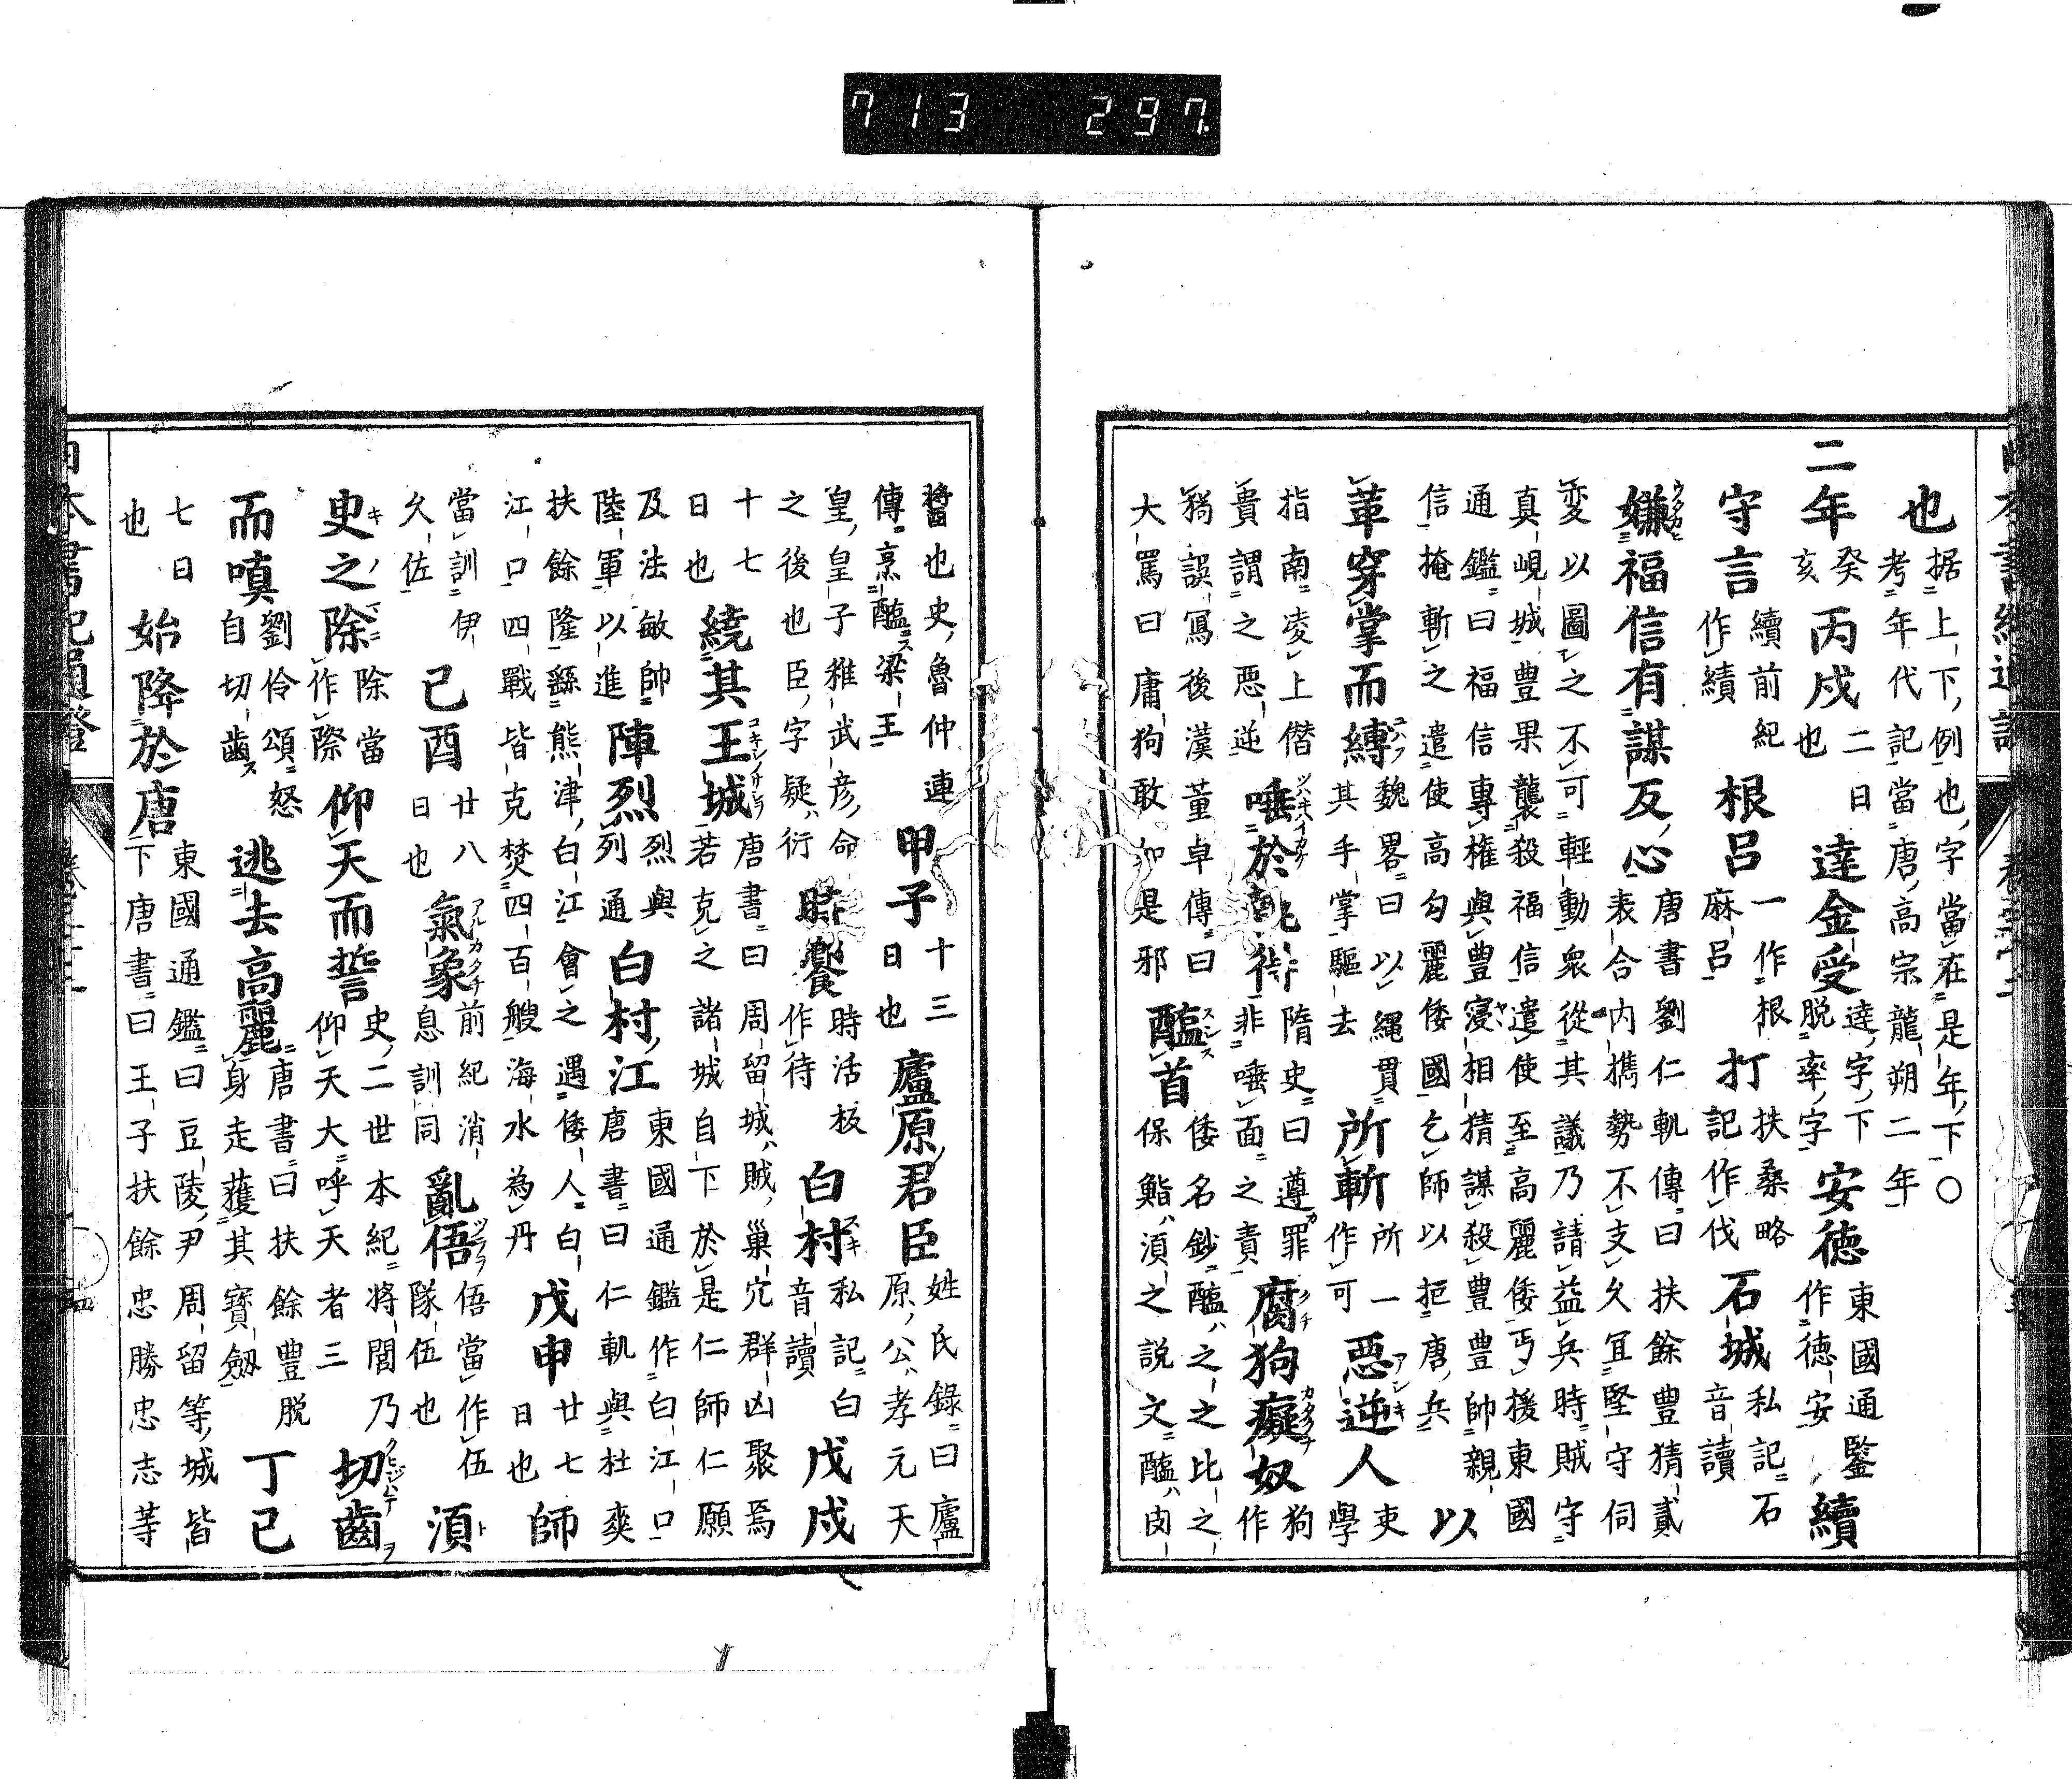 也据上下例也字當在是年下○考年代記當唐高宗龍朔二年
二年癸亥丙戌二日也達金受達字下脱率字安徳東國通鑒作徳安續
守言續前紀作績根呂一作根麻呂打扶桑略記作伐石城私記石音讀
嫌福信有謀反心唐書劉仁軌傳曰扶餘豐猜貳表合内携勢不支久宜堅守伺
変以圖之不可輕動衆從其議乃請益兵時賊守真峴城豊果襲殺福信遣使至高麗倭丐援東國
通鑑曰福信專權與豊寝相猜謀殺豊豊帥親信掩斬之遣使高勾麗倭國乞師以拒唐兵以
革穿掌而縛魏畧曰以縄貫其手掌驅去所斬所一作可惡逆人吏學
指南凌上僭貴謂之悪逆唾於執得隋史曰遵罪非唾面之責腐狗癡奴狗作
猧誤寫後漢董卓傳曰大罵曰庸狗敢如是邪醢首倭名鈔醢之之比之保鮨湏之説文醢肉
醬也史魯仲連傳烹醢梁王甲子十三日也廬原君臣姓氏錄曰廬原公孝元天
皇皇子稚武彦命之後也臣字疑衍時饗時活板作待白村私記白音讀戊戌
十七日也繞其王城唐書曰周留城賊巢穴群凶聚焉若克之諸城自下於是仁師仁願
及法敏帥陸軍以進陣烈烈與列通白村江東國通鑑作白江口唐書曰仁軌與杜爽
扶餘隆繇熊津白江會之遇倭人白江口四戰皆克焚四百艘海水為丹戊申廿七日也師
當訓伊久佐己酉廿八日也氣象前紀消息訓同亂悟悟當作伍隊伍也湏
史之除除當作際仰天而誓史二世本紀將閭乃仰天大呼天者三切齒
而嗔劉伶頌怒自切齒逃去高麗唐書曰扶餘豊脱身走獲其寶劔丁巳
七日也始降於唐東國通鑑曰豆陵尹周留等城皆下唐書曰王子扶餘忠勝忠志等
713 297